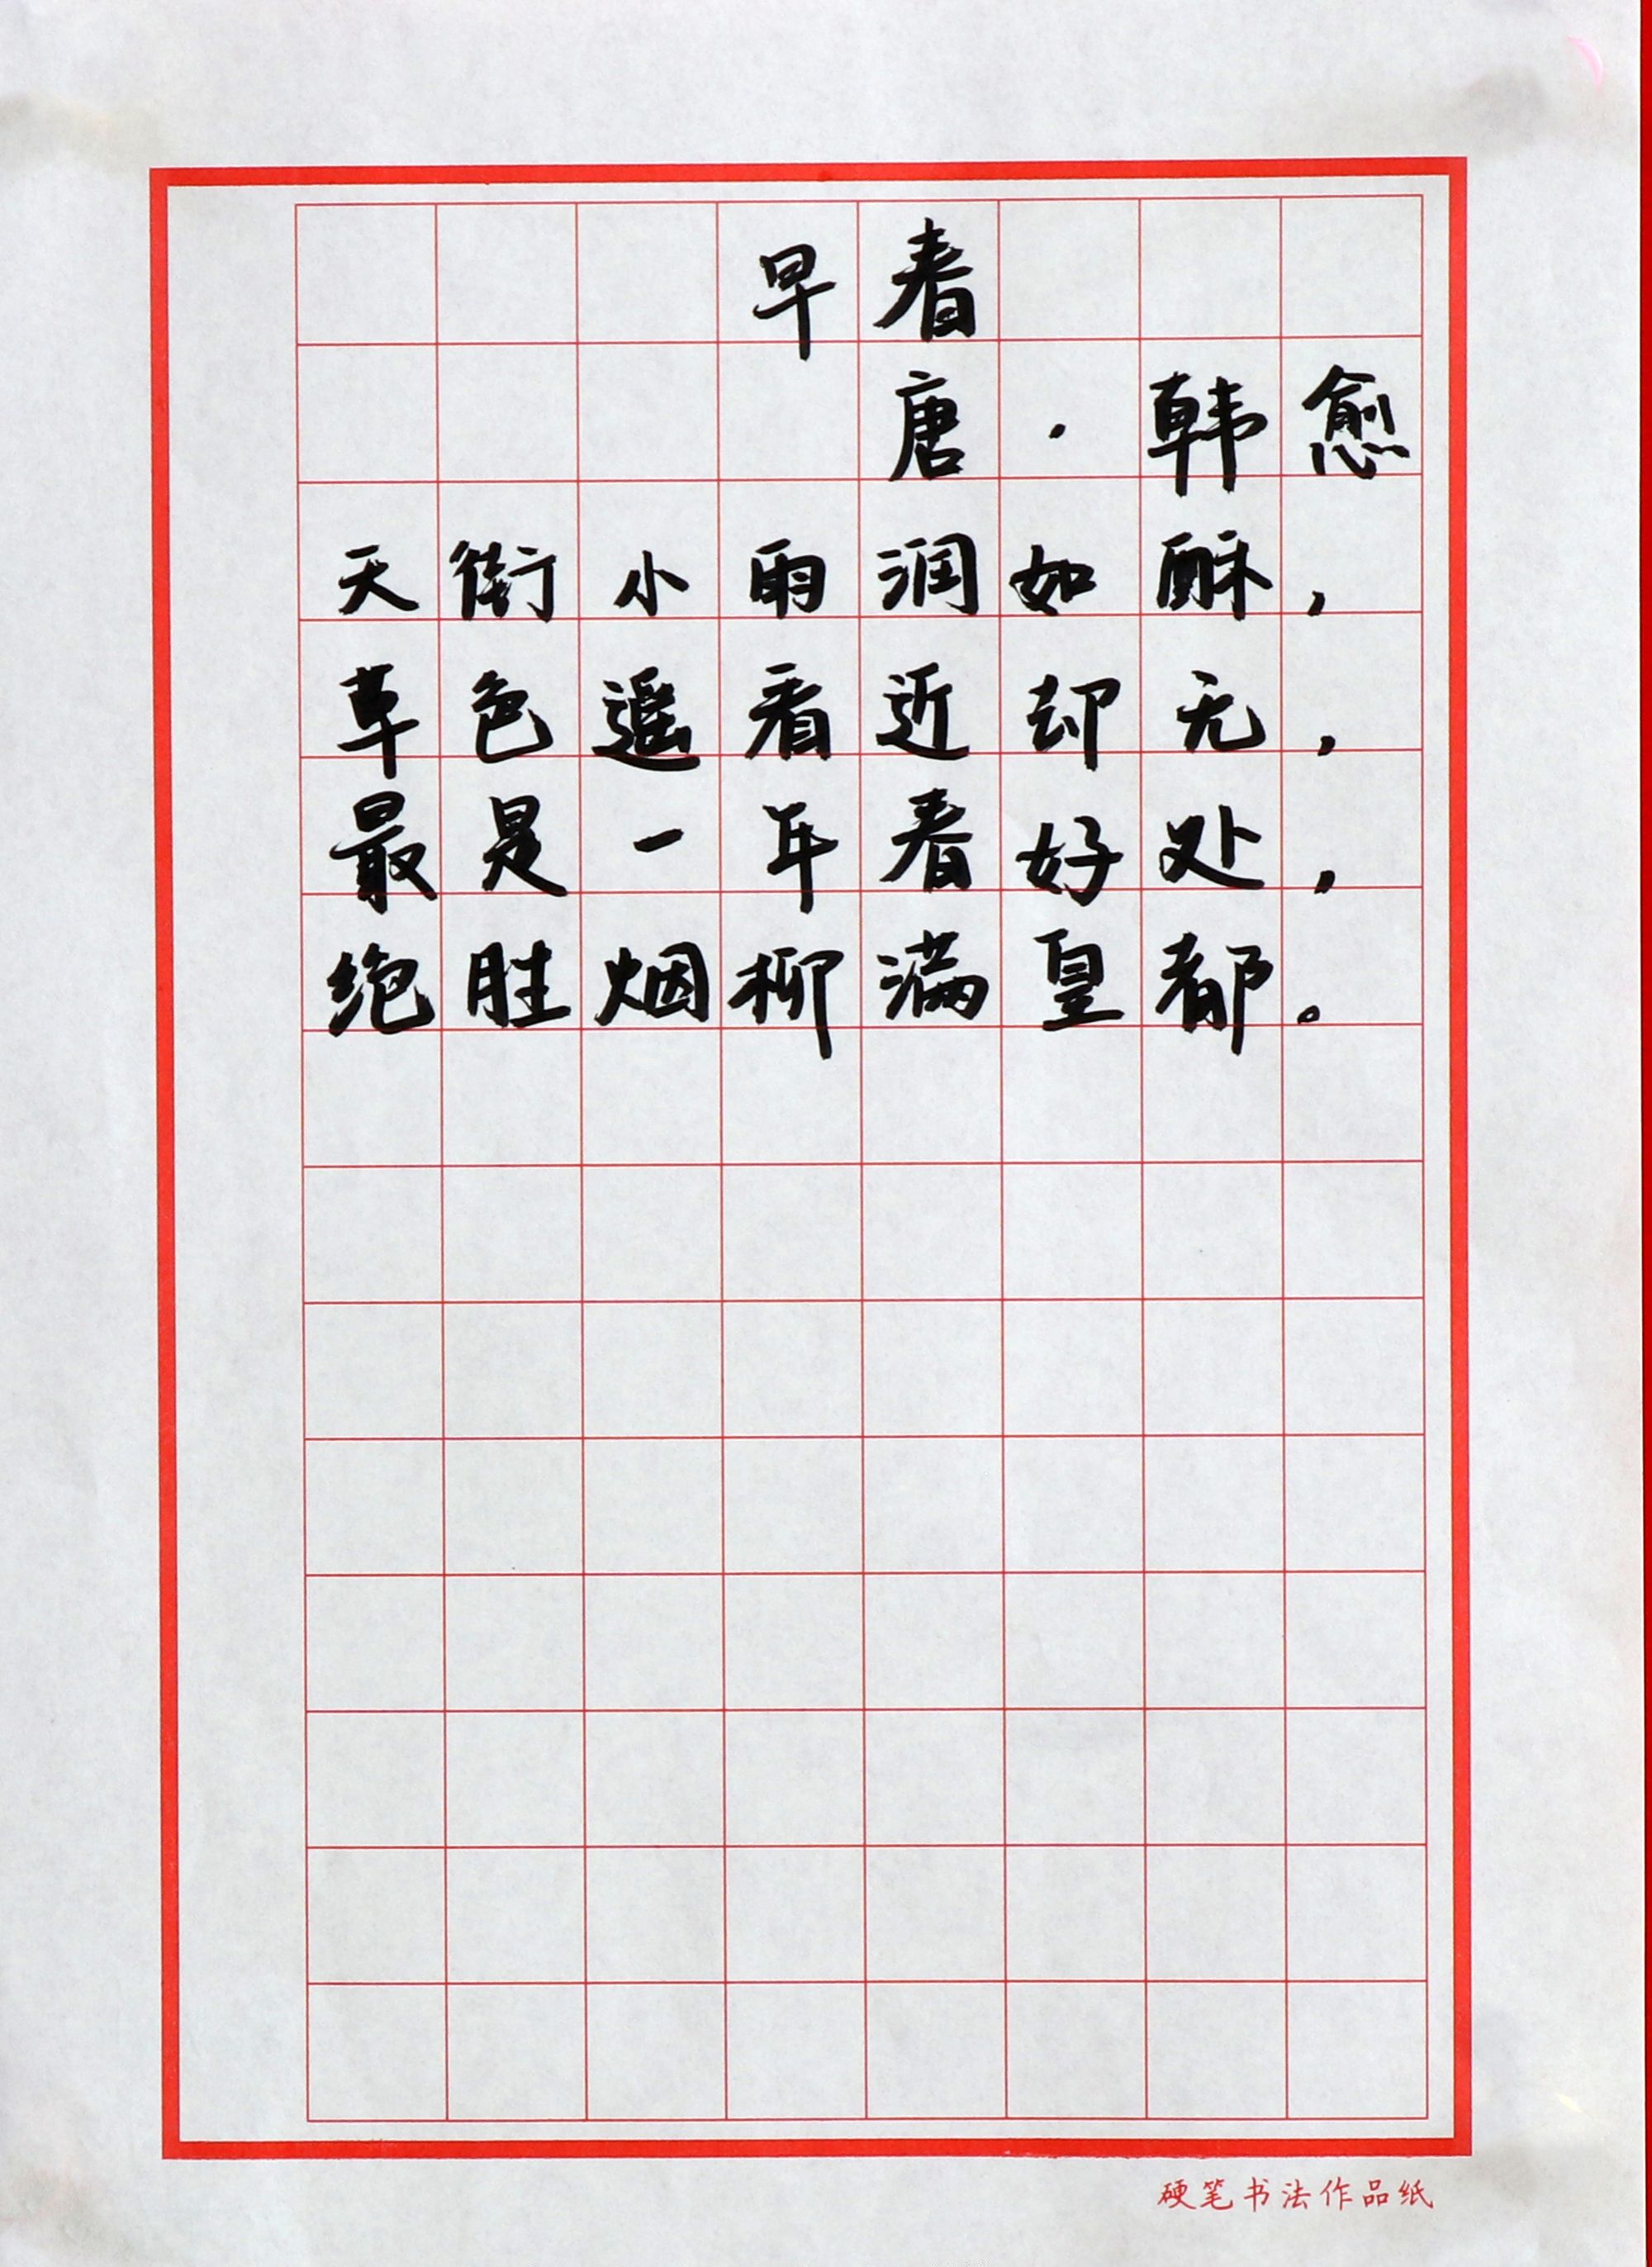 早春
唐·韩愈
天街小雨润如酥，
草色遥看近却无，
最是一年春好处，
绝胜烟柳满皇都。
硬笔书法作品纸